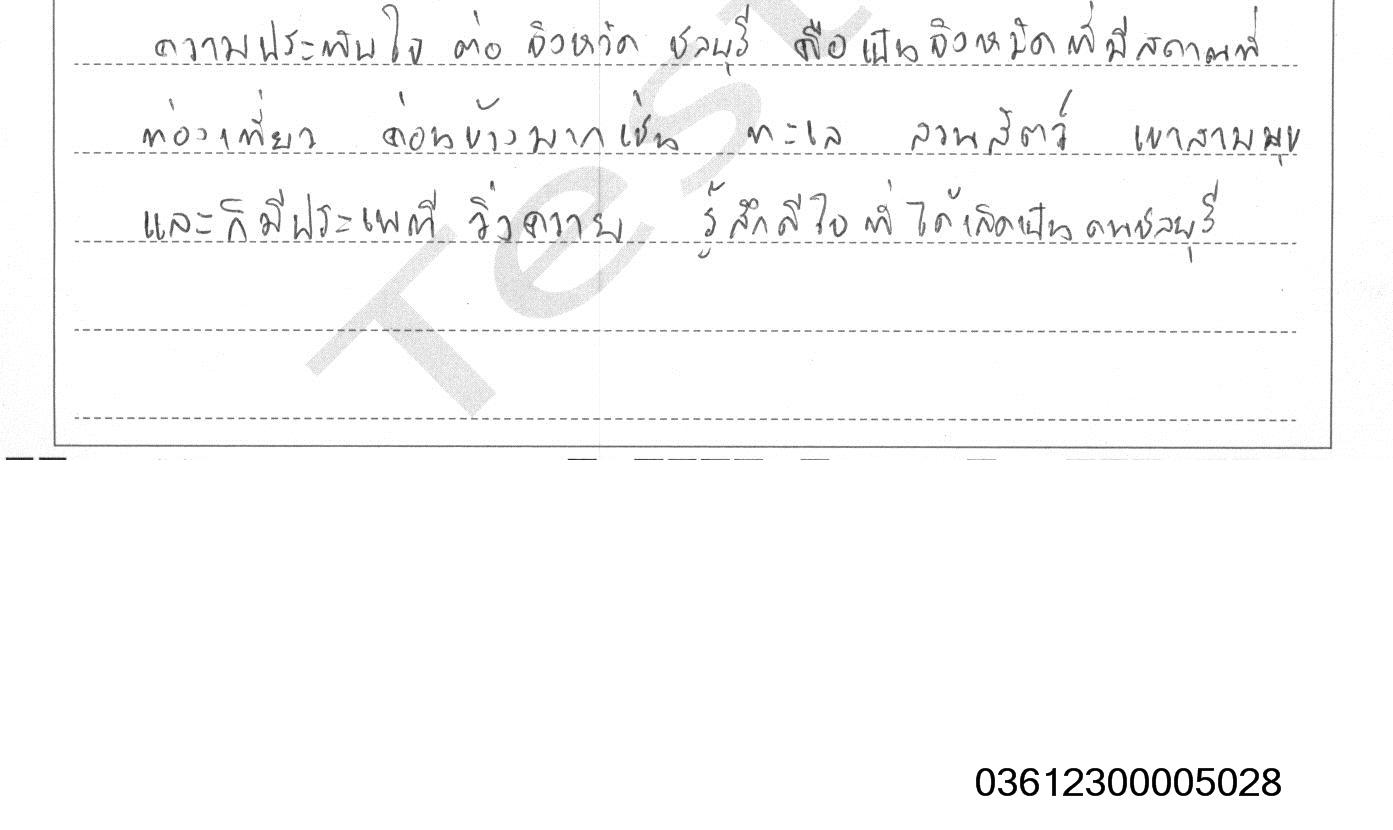 ความประทับใจ ต่อ จังหวัด ชลบุรี คือเป็นจังหวัดที่มีสถานที่
ท่องเที่ยว ค่อนข้างมากเช่น ทะเล สวนสัตว์ เขาสามมุข
และก็มีประเพณี วิ่งควาย รู้สึกดีใจที่ได้เกิดเป็นคนชลบุรี
Test
03612300005028